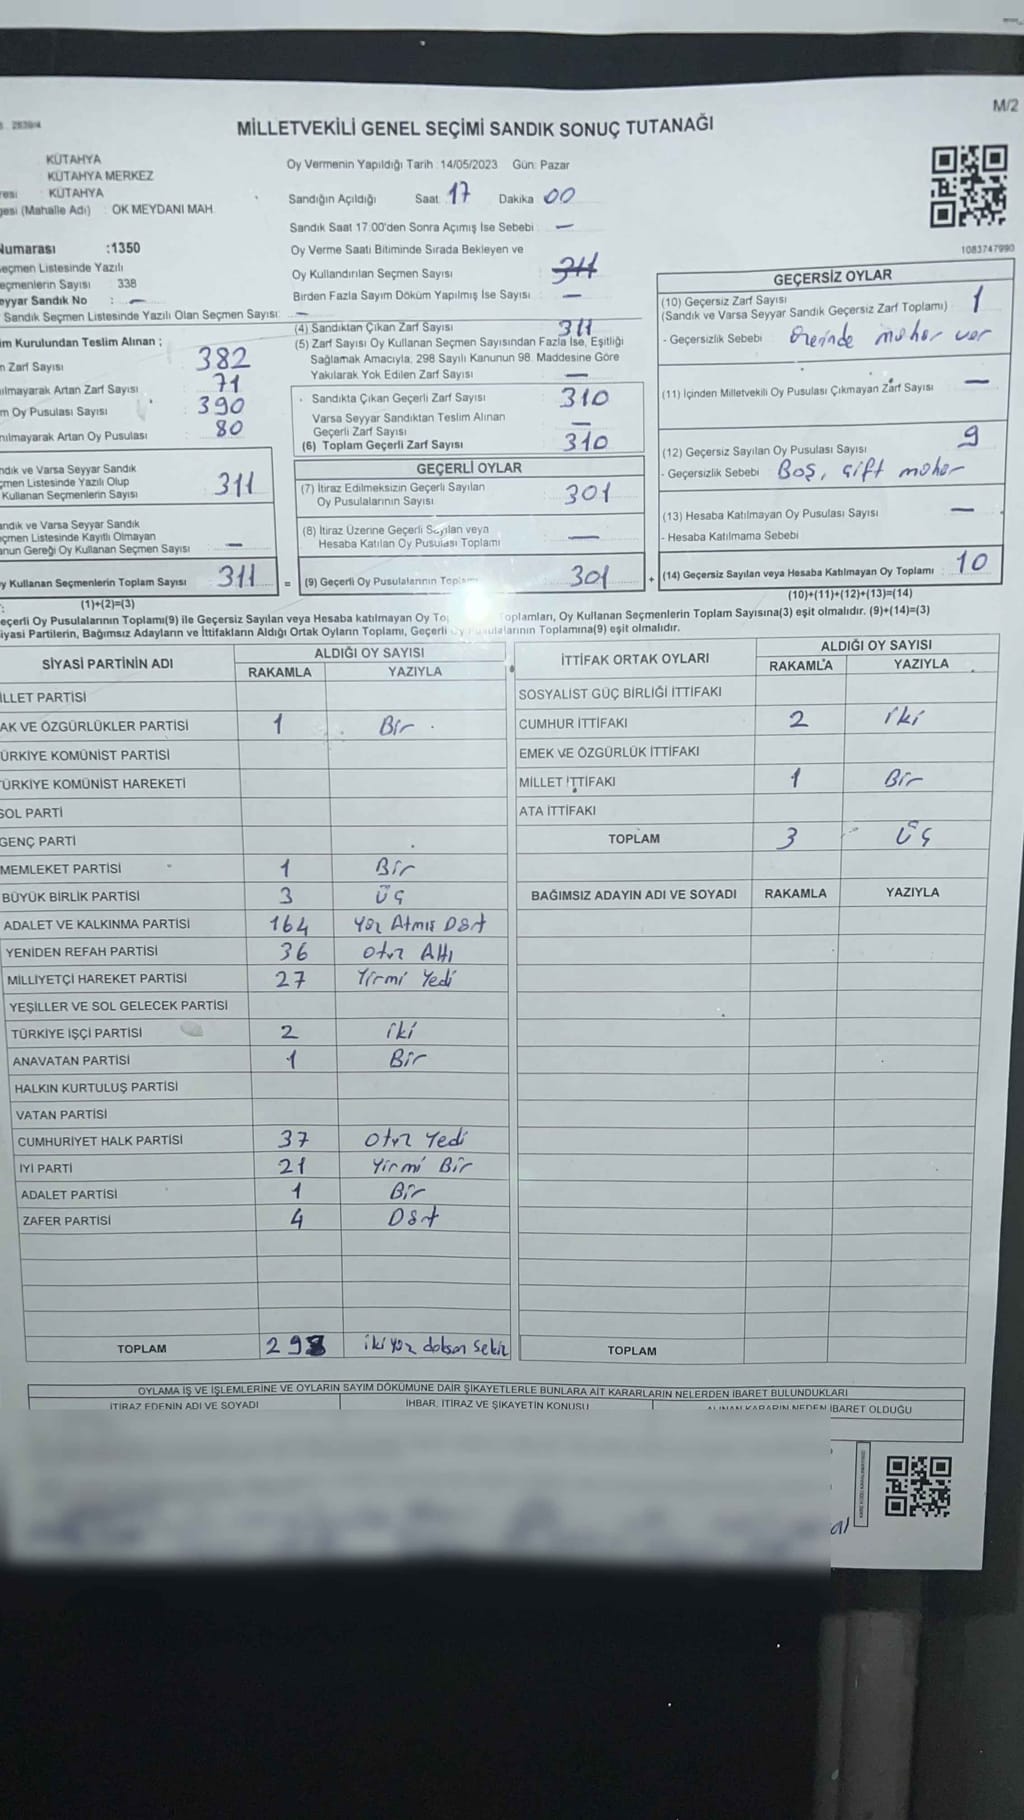 M/2
MİLLETVEKİLİ GENEL SEÇİMİ SANDIK SONUÇ TUTANAĞI
KÜTAHYA
KÜTAHYA MERKEZ
resi : KÜTAHYA
gesi (Mahalle Adı) : OK MEYDANI MAH.
Oy Vermenin Yapıldığı Tarih : 14/05/2023 Gün: Pazar
Sandığın Açıldığı Saat 17 Dakika 00
Sandık Saat 17:00'den Sonra Açımış İse Sebebi : —
Oy Verme Saati Bitiminde Sırada Bekleyen ve
Oy Kullandırılan Seçmen Sayısı 311
Birden Fazla Sayım Döküm Yapılmış İse Sayısı : —
1083747990
Numarası :1350
eçmen Listesinde Yazılı
eçmenlerin Sayısı : 338
eyyar Sandık No : —
Sandık Seçmen Listesinde Yazılı Olan Seçmen Sayısı: —
im Kurulundan Teslim Alınan ;
n Zarf Sayısı 382
ılmayarak Artan Zarf Sayısı 71
m Oy Pusulası Sayısı 390
nılmayarak Artan Oy Pusulası 80
ndık ve Varsa Seyyar Sandık
çmen Listesinde Yazılı Olup
Kullanan Seçmenlerin Sayısı 311
andık ve Varsa Seyyar Sandık
çmen Listesinde Kayıtlı Olmayan
anun Gereği Oy Kullanan Seçmen Sayısı —
y Kullanan Seçmenlerin Toplam Sayısı 311
(1)+(2)=(3)
(4) Sandıktan Çıkan Zarf Sayısı 311
(5) Zarf Sayısı Oy Kullanan Seçmen Sayısından Fazla İse, Eşitliği
Sağlamak Amacıyla, 298 Sayılı Kanunun 98. Maddesine Göre
Yakılarak Yok Edilen Zarf Sayısı —
Sandıkta Çıkan Geçerli Zarf Sayısı 310
Varsa Seyyar Sandıktan Teslim Alınan
Geçerli Zarf Sayısı —
(6) Toplam Geçerli Zarf Sayısı 310
GEÇERLİ OYLAR
(7) İtiraz Edilmeksizin Geçerli Sayılan
Oy Pusulalarının Sayısı 301
(8) İtiraz Üzerine Geçerli Sayılan veya
Hesaba Katılan Oy Pusulası Toplamı —
= (9) Geçerli Oy Pusulalarının Toplamı 301 +
GEÇERSİZ OYLAR
(10) Geçersiz Zarf Sayısı 1
(Sandık ve Varsa Seyyar Sandık Geçersiz Zarf Toplamı)
- Geçersizlik Sebebi : üzerinde mühür var
(11) İçinden Milletvekili Oy Pusulası Çıkmayan Zarf Sayısı —
(12) Geçersiz Sayılan Oy Pusulası Sayısı 9
- Geçersizlik Sebebi : Boş, çift mühür
(13) Hesaba Katılmayan Oy Pusulası Sayısı —
- Hesaba Katılmama Sebebi
(14) Geçersiz Sayılan veya Hesaba Katılmayan Oy Toplamı : 10
(10)+(11)+(12)+(13)=(14)
eçerli Oy Pusulalarının Toplamı(9) ile Geçersiz Sayılan veya Hesaba katılmayan Oy Toplamları, Oy Kullanan Seçmenlerin Toplam Sayısına(3) eşit olmalıdır. (9)+(14)=(3)
iyasi Partilerin, Bağımsız Adayların ve İttifakların Aldığı Ortak Oyların Toplamı, Geçerli Oy Pusulalarının Toplamına(9) eşit olmalıdır.
SİYASİ PARTİNİN ADI ALDIĞI OY SAYISI
RAKAMLA YAZIYLA
İLLET PARTİSİ
AK VE ÖZGÜRLÜKLER PARTİSİ 1 Bir
ÜRKİYE KOMÜNİST PARTİSİ
TÜRKİYE KOMÜNİST HAREKETİ
SOL PARTİ
GENÇ PARTİ
MEMLEKET PARTİSİ 1 Bir
BÜYÜK BİRLİK PARTİSİ 3 Üç
ADALET VE KALKINMA PARTİSİ 164 Yüz Atmış Dört
YENİDEN REFAH PARTİSİ 36 Otuz Altı
MİLLİYETÇİ HAREKET PARTİSİ 27 Yirmi Yedi
YEŞİLLER VE SOL GELECEK PARTİSİ
TÜRKİYE İŞÇİ PARTİSİ 2 iki
ANAVATAN PARTİSİ 1 Bir
HALKIN KURTULUŞ PARTİSİ
VATAN PARTİSİ
CUMHURİYET HALK PARTİSİ 37 Otuz Yedi
İYİ PARTİ 21 Yirmi Bir
ADALET PARTİSİ 1 Bir
ZAFER PARTİSİ 4 Dört
TOPLAM 298 iki yüz doksan sekiz
İTTİFAK ORTAK OYLARI ALDIĞI OY SAYISI
RAKAMLA YAZIYLA
SOSYALİST GÜÇ BİRLİĞİ İTTİFAKI
CUMHUR İTTİFAKI 2 iki
EMEK VE ÖZGÜRLÜK İTTİFAKI
MİLLET İTTİFAKI 1 Bir
ATA İTTİFAKI
TOPLAM 3 Üç
BAĞIMSIZ ADAYIN ADI VE SOYADI RAKAMLA YAZIYLA
TOPLAM
OYLAMA İŞ VE İŞLEMLERİNE VE OYLARIN SAYIM DÖKÜMÜNE DAİR ŞİKAYETLERLE BUNLARA AİT KARARLARIN NELERDEN İBARET BULUNDUKLARI
İTİRAZ EDENİN ADI VE SOYADI İHBAR, İTİRAZ VE ŞİKAYETİN KONUSU ALINAN KARARIN NEDEN İBARET OLDUĞU